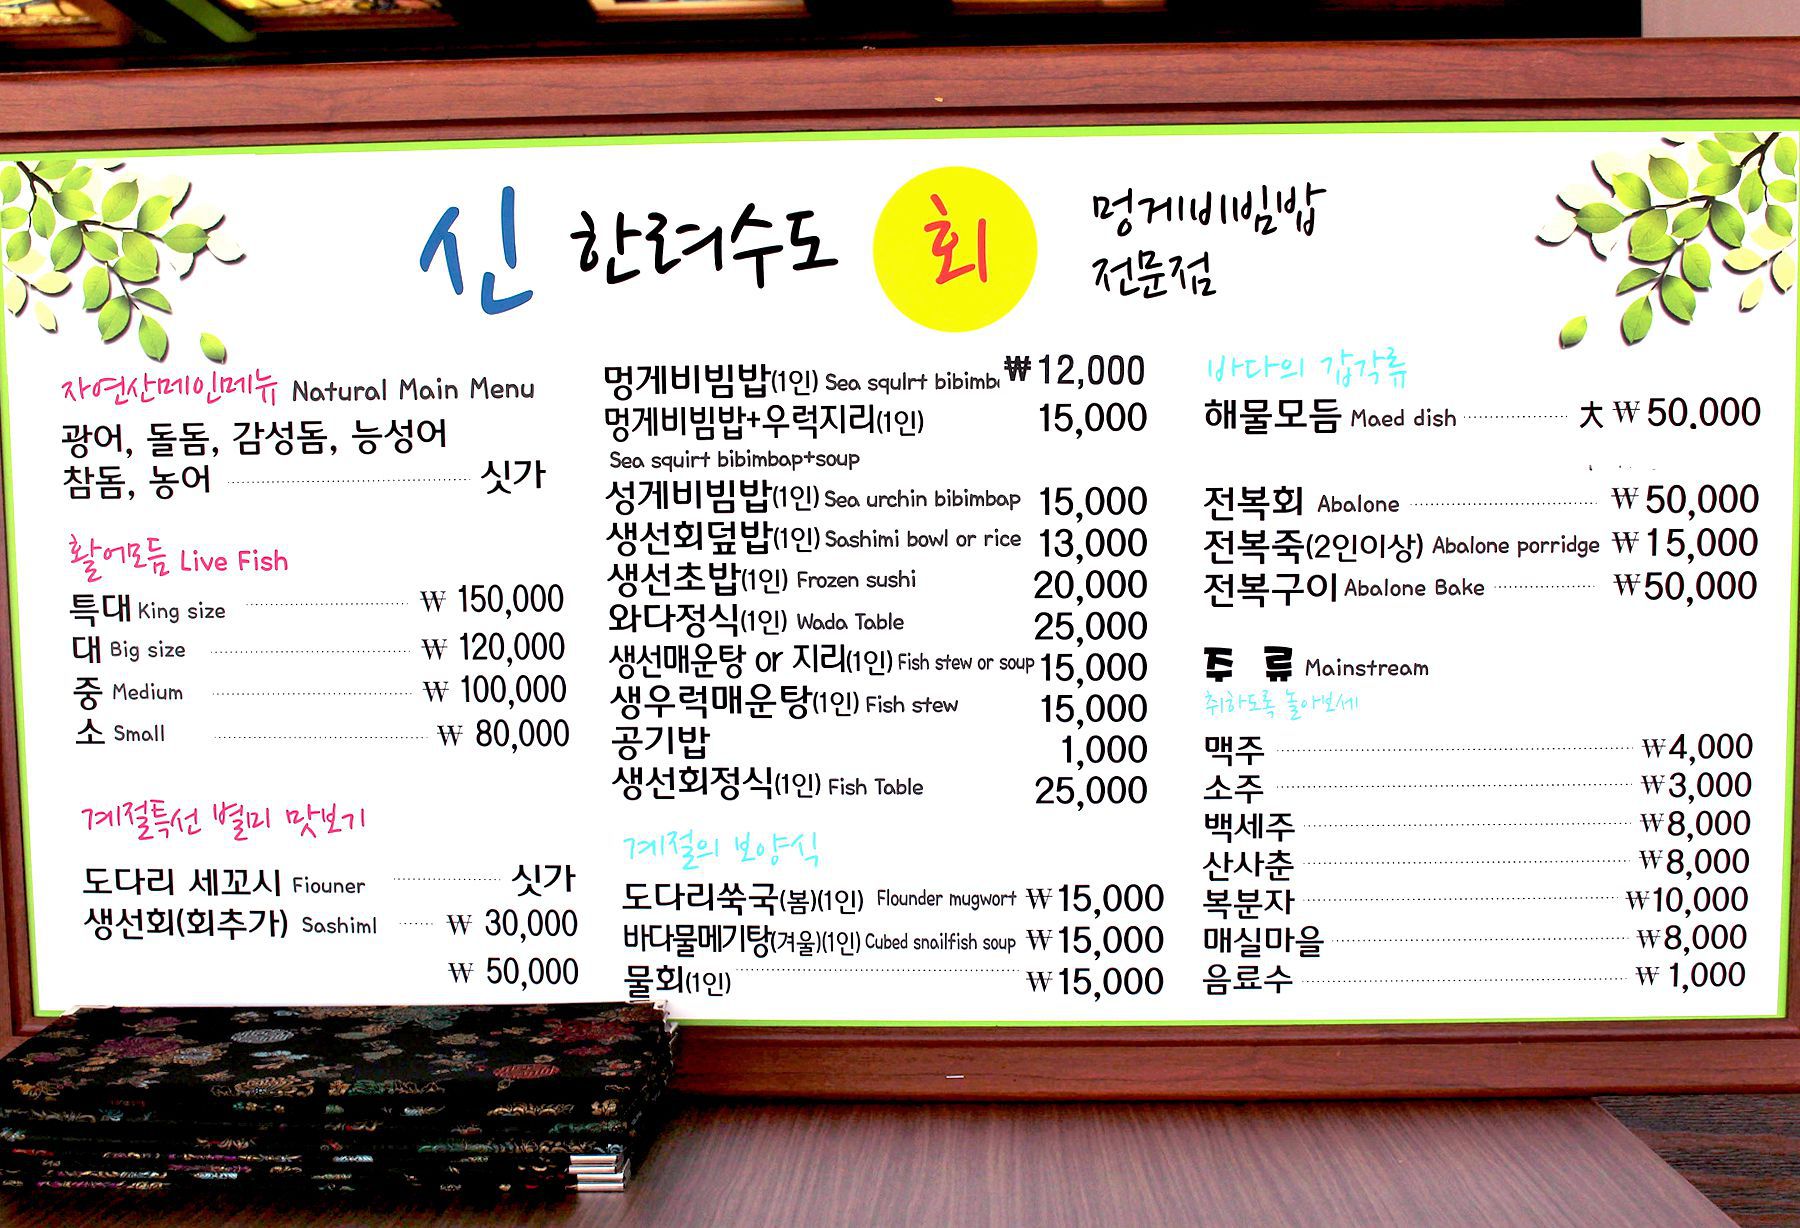 신 한려수도 회 멍게비빔밥
전문점
자연산메인메뉴 Natural Main Menu
광어, 돌돔, 감성돔, 능성어
참돔, 농어 싯가
활어모듬 Live Fish
특대 King size ₩ 150,000
대 Big size ₩ 120,000
중 Medium ₩ 100,000
소 Small ₩ 80,000
계절특선 별미 맛보기
도다리 세꼬시 Fiouner 싯가
생선회(회추가) Sashiml ₩ 30,000
₩ 50,000
멍게비빔밥(1인) Sea squlrt bibimb ₩ 12,000
멍게비빔밥+우럭지리(1인) 15,000
Sea squirt bibimbap+soup
성게비빔밥(1인) Sea urchin bibimbap 15,000
생선회덮밥(1인) Sashimi bowl or rice 13,000
생선초밥(1인) Frozen sushi 20,000
와다정식(1인) Wada Table 25,000
생선매운탕 or 지리(1인) Fish stew or soup 15,000
생우럭매운탕(1인) Fish stew 15,000
공기밥 1,000
생선회정식(1인) Fish Table 25,000
계절의 보양식
도다리쑥국(봄)(1인) Flounder mugwort ₩ 15,000
바다물메기탕(겨울)(1인) Cubed snailfish soup ₩ 15,000
물회(1인) ₩ 15,000
바다의 갑각류
해물모듬 Maed dish 大 ₩ 50.000
전복회 Abalone ₩ 50,000
전복죽(2인이상) Abalone porridge ₩ 15,000
전복구이 Abalone Bake ₩ 50,000
주 류 Mainstream
취하도록 놀아보세
맥주 ₩4,000
소주 ₩3,000
백세주 ₩8,000
산사춘 ₩8,000
복분자 ₩10,000
매실마을 ₩8,000
음료수 ₩ 1,000